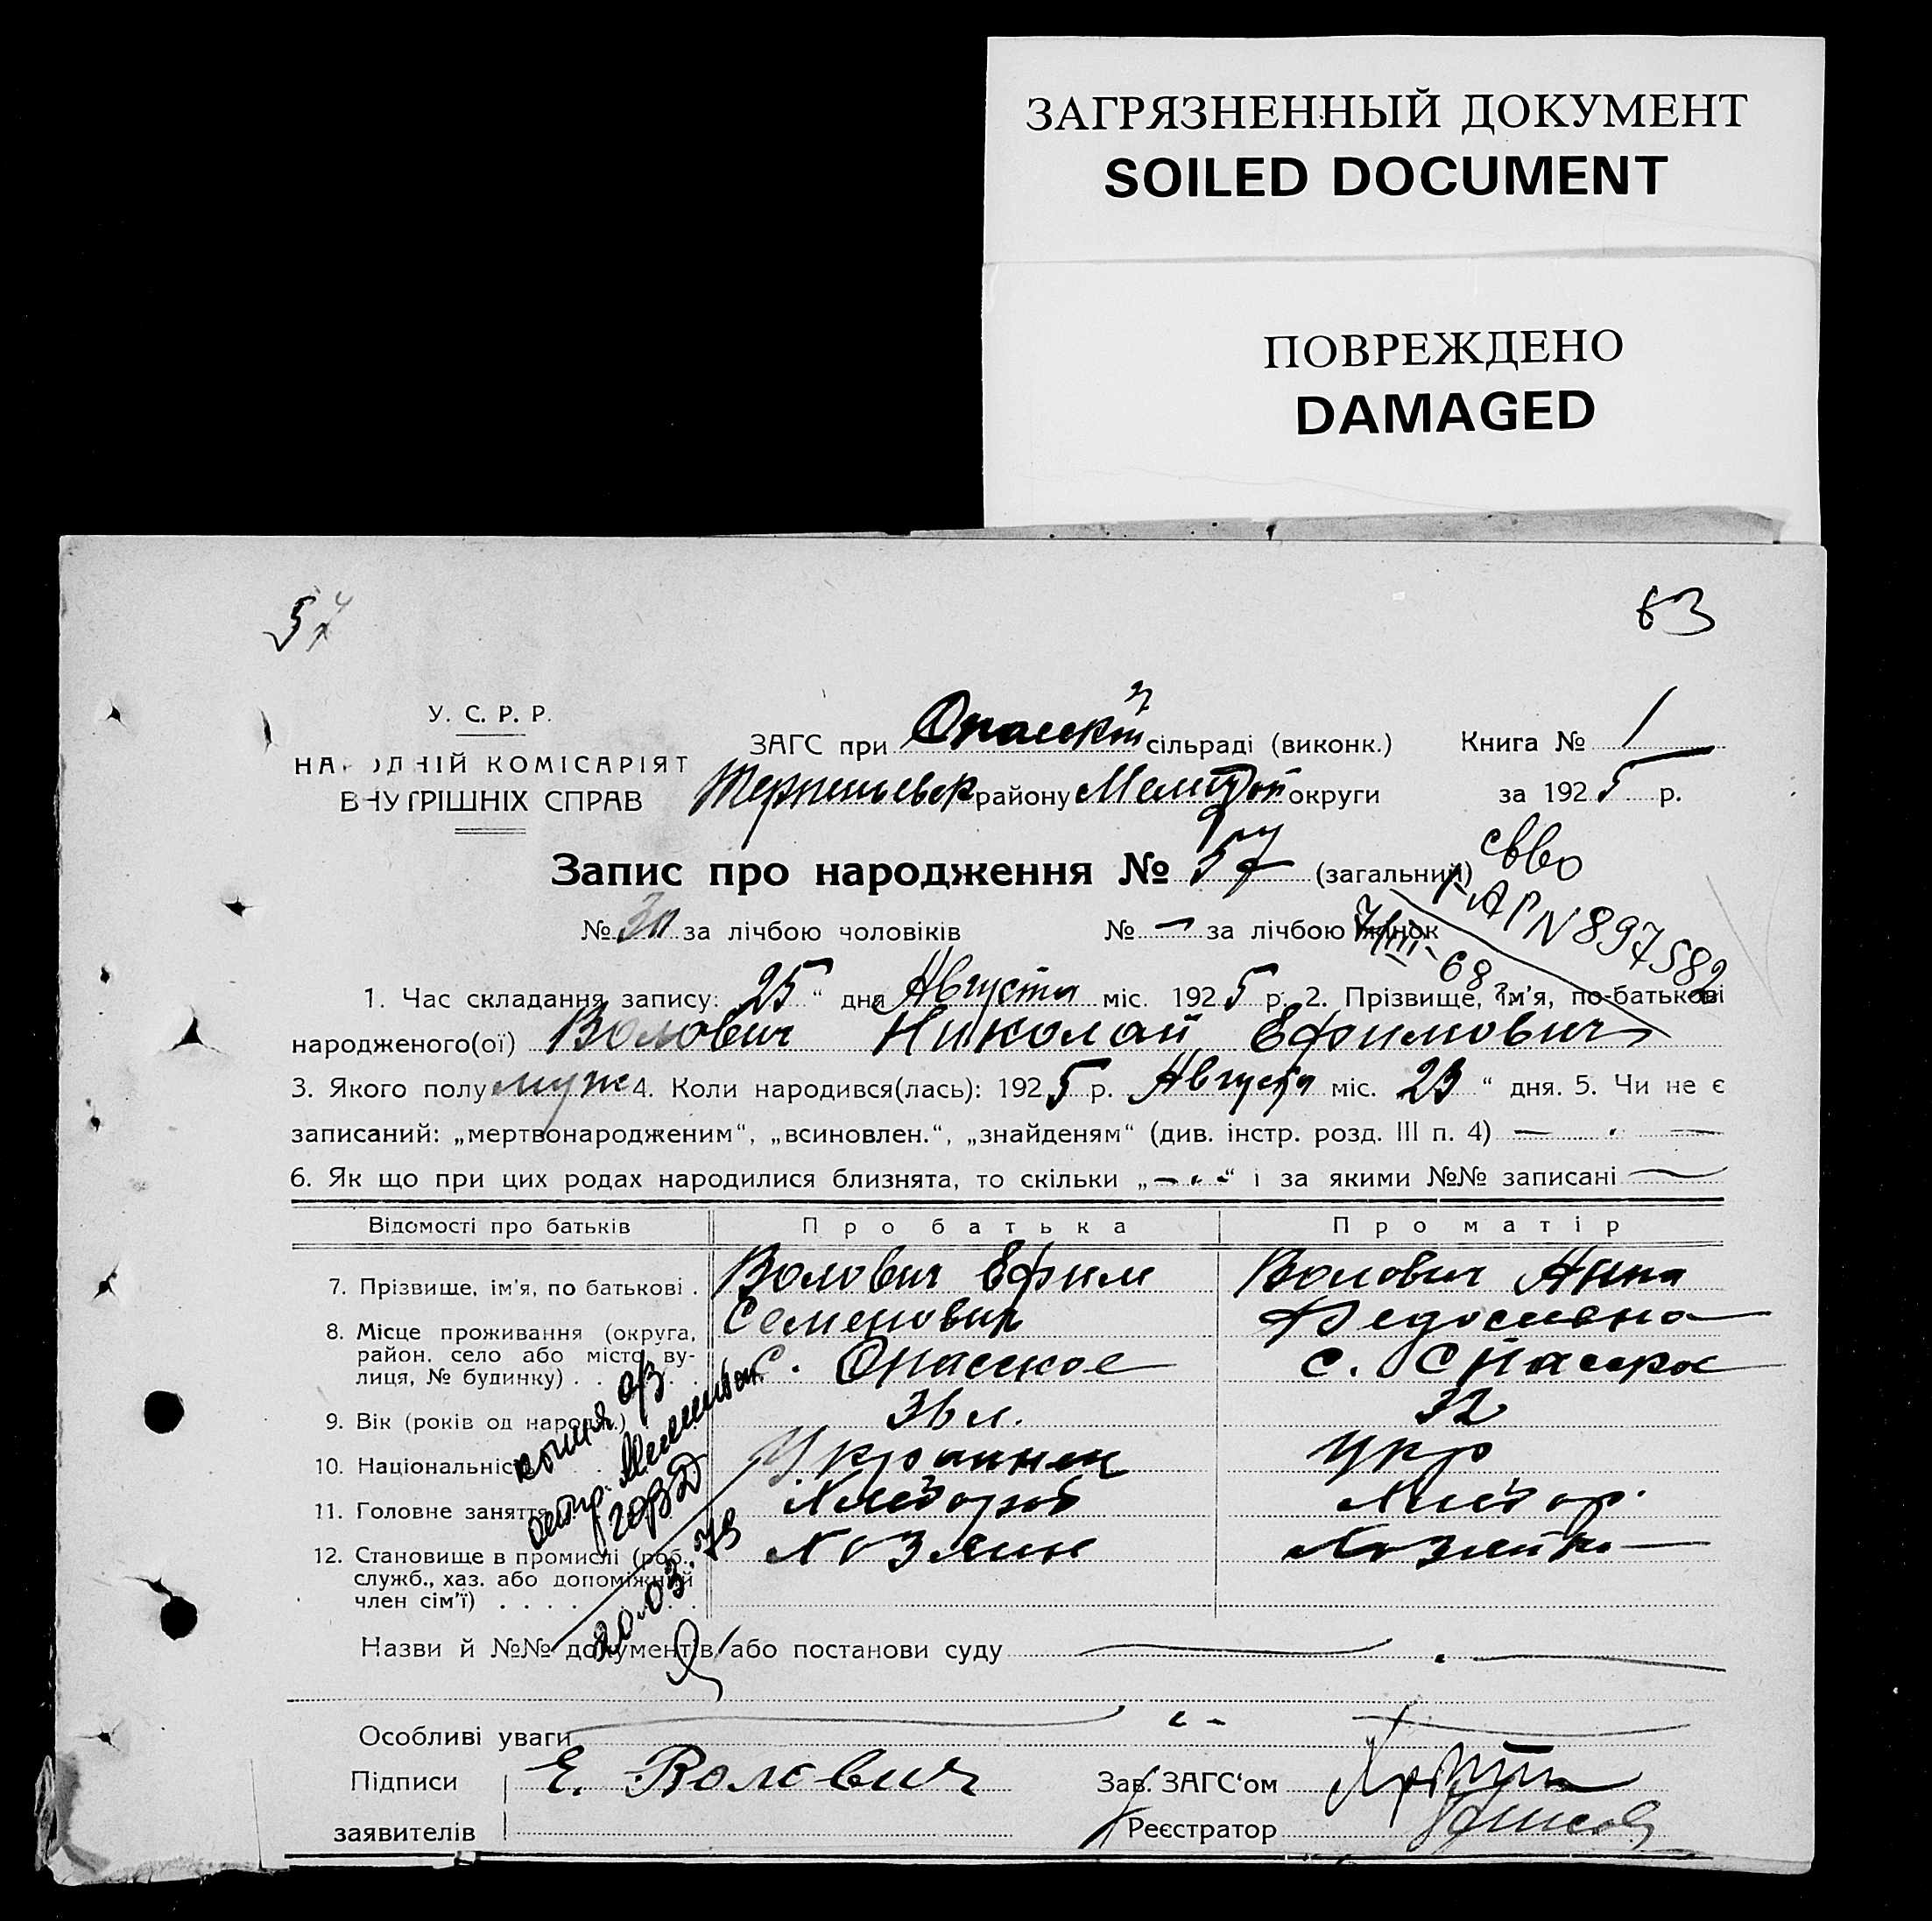 ЗАГРЯЗНЕННЫЙ ДОКУМЕНТ
SOILED DOCUMENT
ПОВРЕЖДЕНО
DAMAGED
57
63
У. С. Р. Р.
НАРОДНІЙ КОМІСАРІЯТ
ВНУТРІШНІХ СПРАВ
ЗАГС при сільраді (виконк.) Книга № 1
району округи за 1925 р.
Запис про народження № 57 (загальний)
№ за лічбою чоловіків № — за лічбою жінок
свво
I-АП N 897582
7/III-68 г.
1. Час складання запису: 25 “ дня Августа міс. 1925 р. 2. Прізвище, ім'я, по-батькові
народженого(ої) Волович Николай Ефимович
3. Якого полу муж 4. Коли народився(лась): 1925 р. Августа міс. 23 “ дня. 5. Чи не є
записаний: „мертвонародженим“, „всиновлен.“, „знайденям“ (див. інстр. розд. III п. 4) —
6. Як що при цих родах народилися близнята, то скільки „—“ і за якими №№ записані —
Відомості про батьків Про батька Про матір
7. Прізвище, ім'я, по батькові . Волович Ефим Семенович Волович Анна Федосиевна
8. Місце проживання (округа,
район, село або місто, ву-
лиця, № будинку) . . . с. Спасское с. Спаское
9. Вік (років од народж.) 36 л. 32
10. Національність Украинец Укр
11. Головне заняття Хлебороб Хлебор.
12. Становище в промислі (роб.,
служб., хаз. або допоміжний
член сім'ї) . . . . Хозяин Хозяйка
копия
20.03.79
Назви й №№ документів або постанови суду —
Особливі уваги —
Підписи Е. Волович Зав. ЗАГС‘ом
заявителів Реєстратор